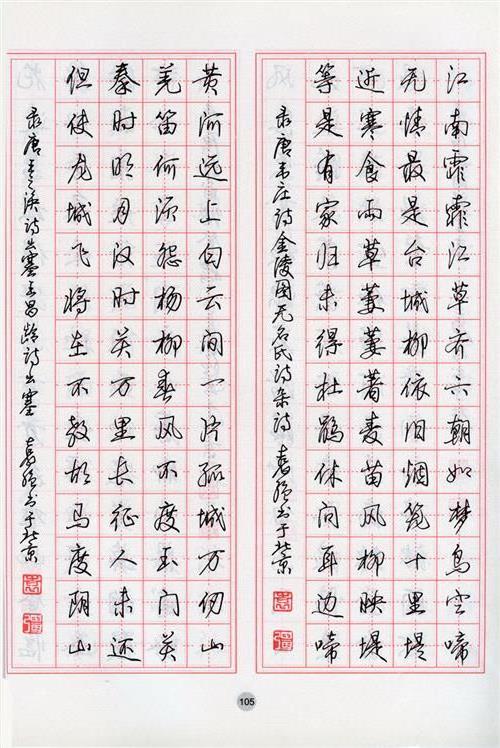 江南霏霏江草齐六朝如梦鸟空啼
无情最是台城柳依旧烟笼十里堤
近寒食雨草萋萋著麦苗风柳映堤
等是有家归未得杜鹃休向耳边啼
录唐韦庄诗金陵图无名氏诗杂诗 袁强书于北京
袁
强
黄河远上白云间一片孤城万仞山
羌笛何须怨杨柳春风不度玉门关
秦时明月汉时关万里长征人未还
但使龙城飞将在不教胡马度阴山
录唐王之涣诗出塞王昌龄诗出塞 袁强书于北京
袁
强
105